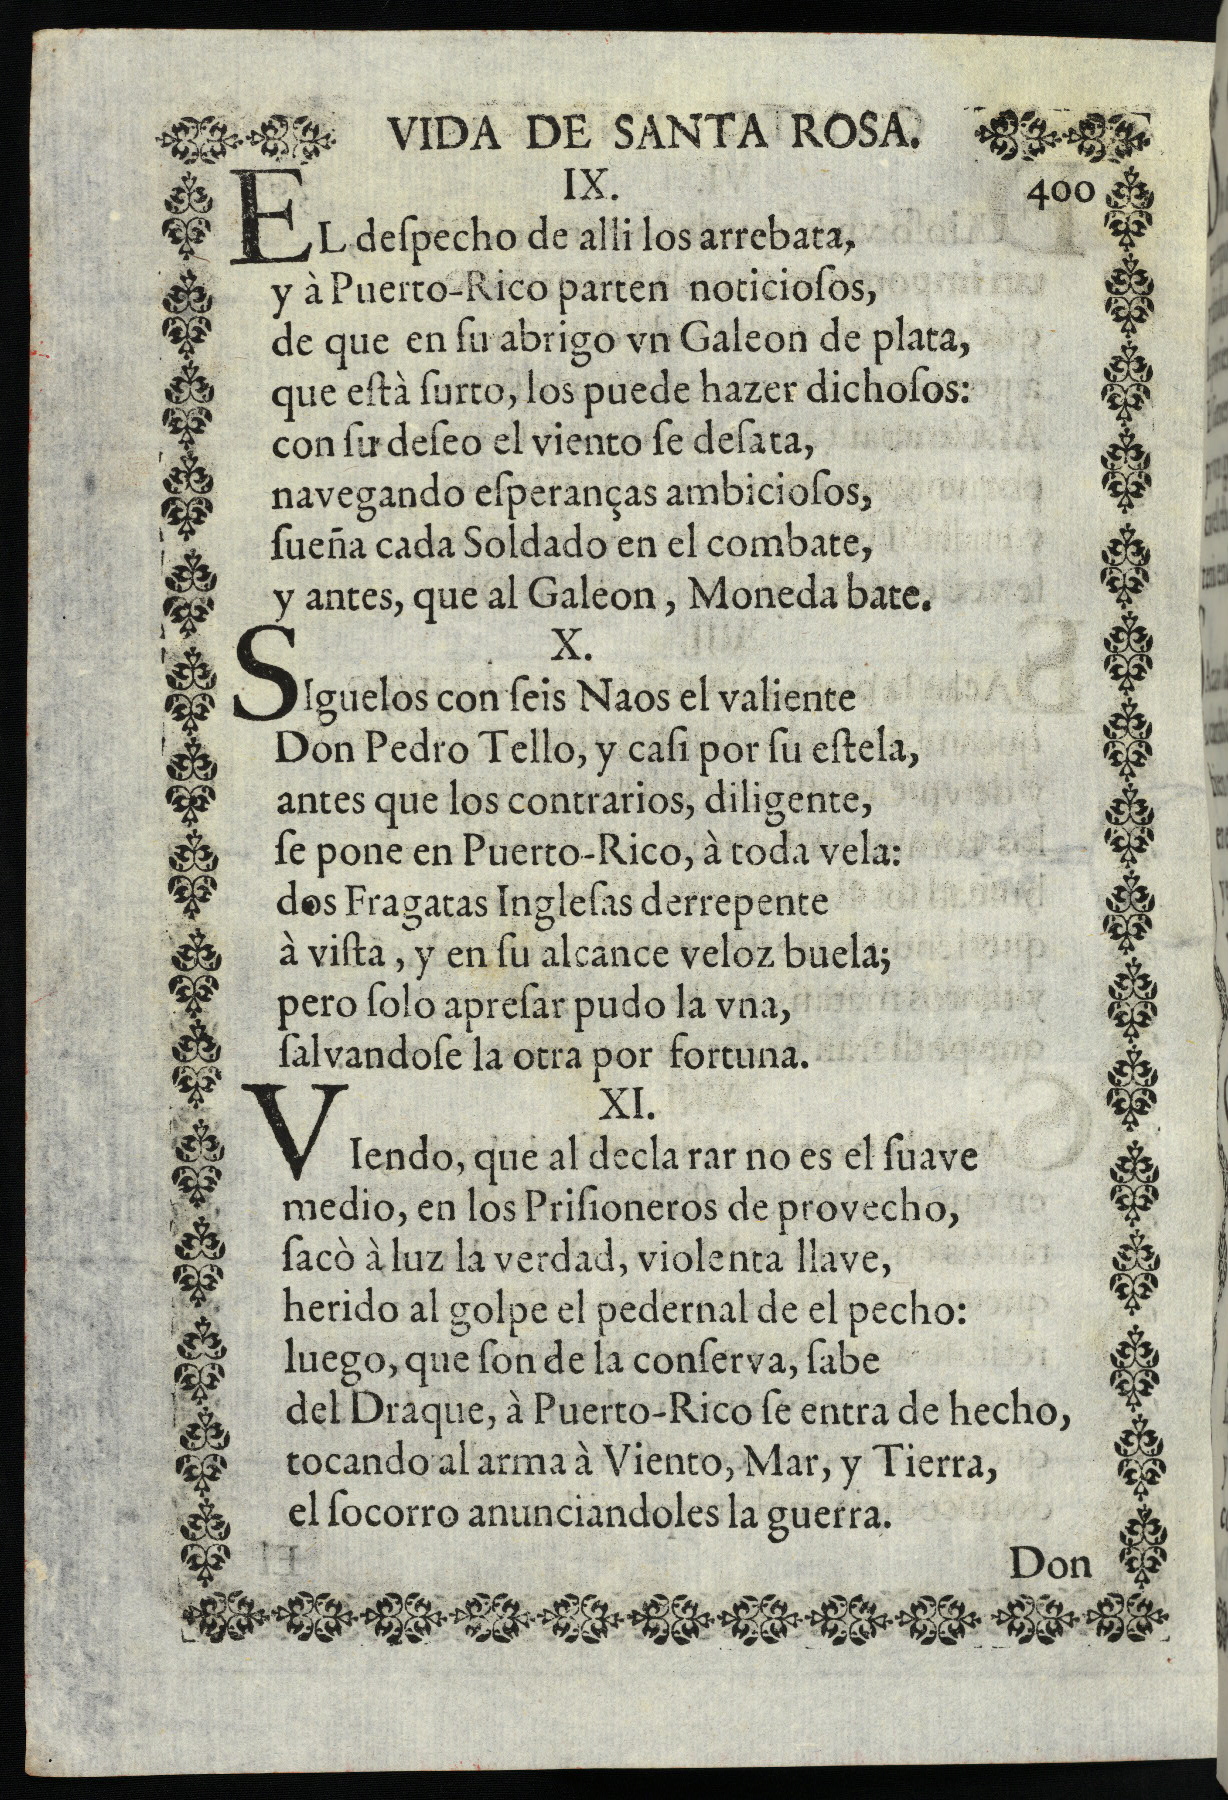 VIDA DE SANTA ROSA.
IX.
400
EL deſpecho de alli los arrebata,
y à Puerto-Rico parten noticioſos,
de que en ſu abrigo vn Galeon de plata,
que eſtà ſurto, los puede hazer dichoſos:
con ſu deſeo el viento ſe deſata,
navegando eſperanças ambicioſos,
ſueña cada Soldado en el combate,
y antes, que al Galeon, Moneda bate.
X.
SIguelos con ſeis Naos el valiente
Don Pedro Tello, y caſi por ſu eſtela,
antes que los contrarios, diligente,
ſe pone en Puerto-Rico, à toda vela:
dos Fragatas Ingleſas derrepente
à viſta, y en ſu alcance veloz buela;
pero ſolo apreſar pudo la vna,
ſalvandoſe la otra por fortuna.
XI.
VIendo, que al decla rar no es el ſuave
medio, en los Priſioneros de provecho,
ſacò à luz la verdad, violenta llave,
herido al golpe el pedernal de el pecho:
luego, que ſon de la conſerva, ſabe
del Draque, à Puerto-Rico ſe entra de hecho,
tocando al arma à Viento, Mar, y Tierra,
el ſocorro anunciandoles la guerra.
Don